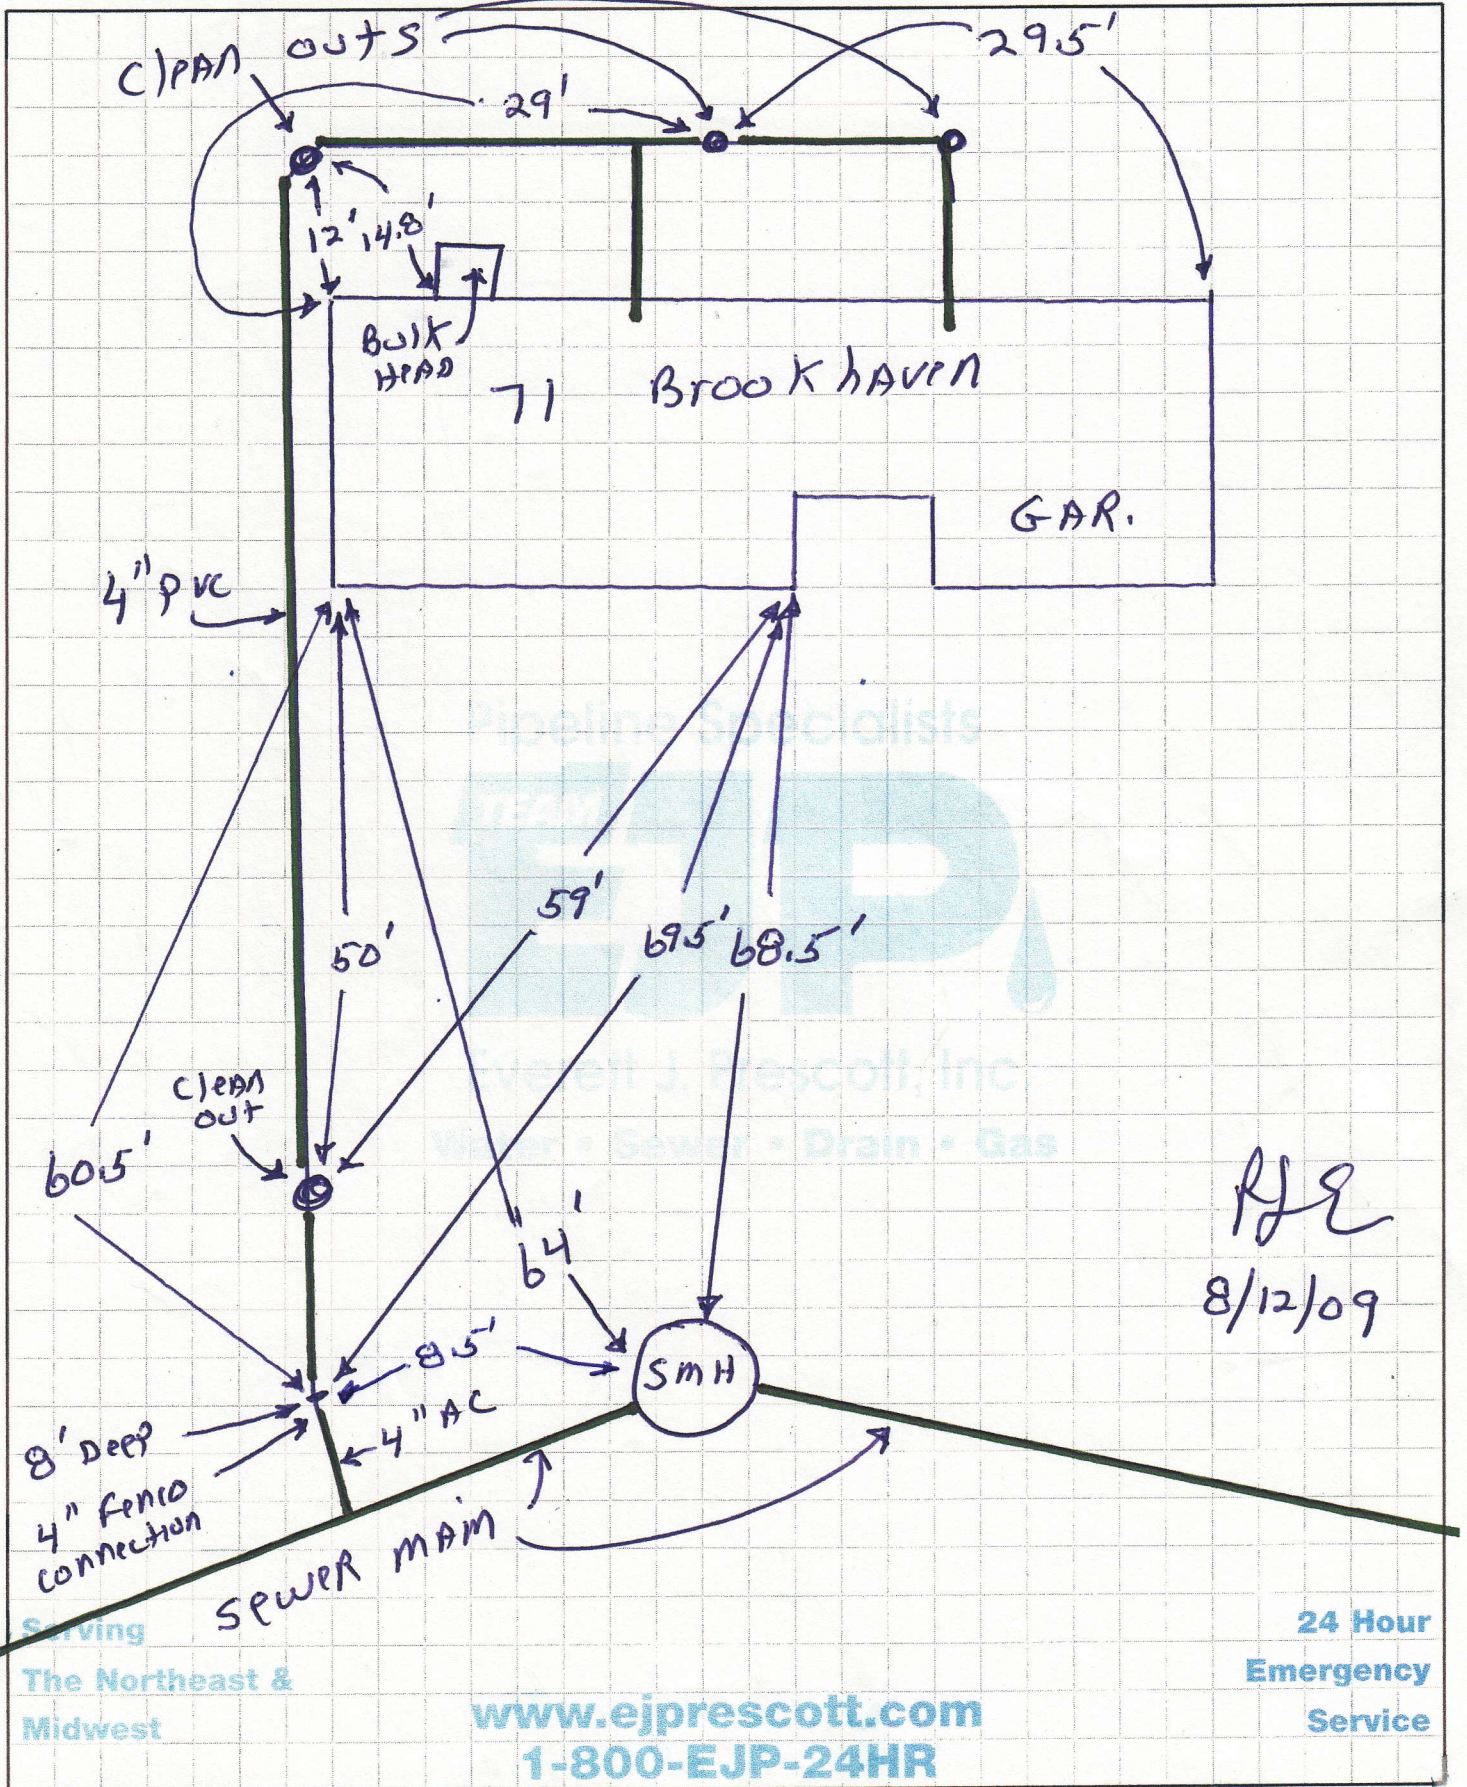 Clean outs
29.5'
29'
12' 14.8'
Bulk
Head
71 Brookhaven
GAR.
4" PVC
Pipeline Specialists
TEAM
EJP
59'
50'
69.5' 68.5'
Everett J. Prescott, Inc.
Water • Sewer • Drain • Gas
Clean
out
60.5'
64'
8/12/09
8.5'
SMH
4" AC
8' Deep
4" Fenco
connection
Sewer main
Serving
The Northeast &
Midwest
24 Hour
Emergency
Service
www.ejprescott.com
1-800-EJP-24HR